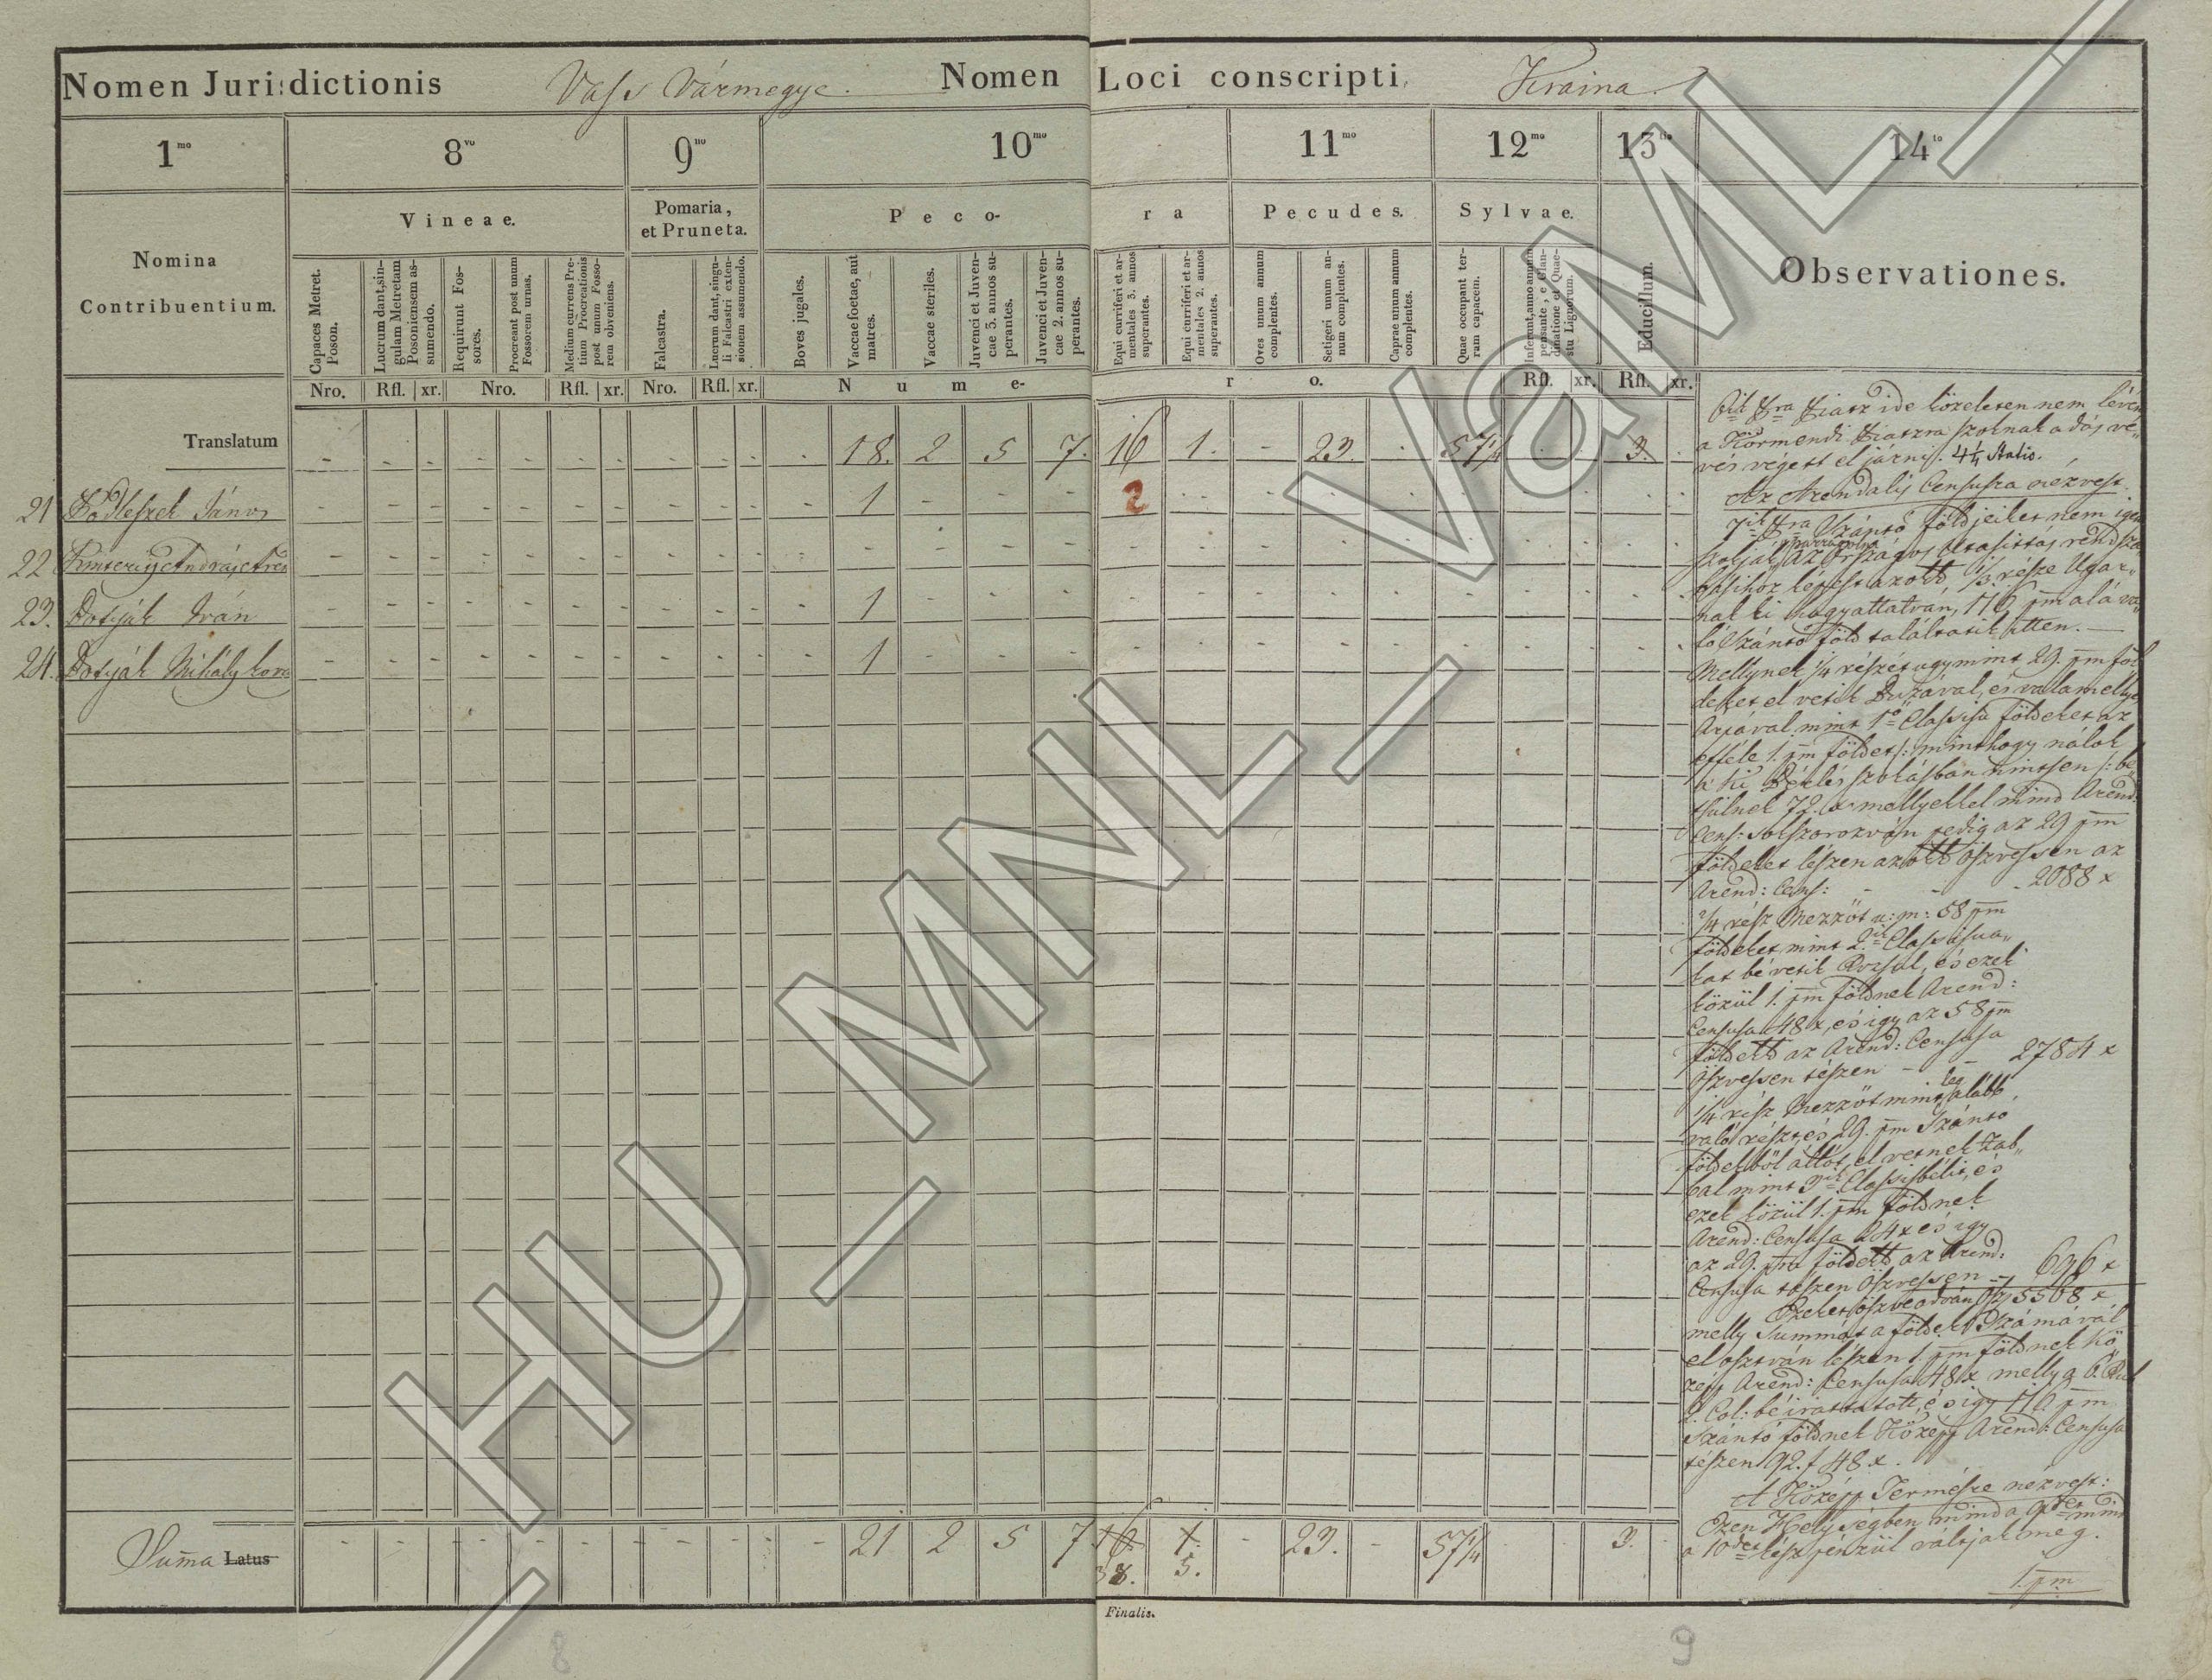 Nomen Jurisdictionis Vass Vármegye. Nomen Loci conscripti Kraina.
1mo 8vo 9no 10mo 11mo 12mo 13tio 14to
Nomina Contribuentium.
Vineae.
Pomaria, et Pruneta.
Peco-
ra
Pecudes.
Sylvae.
Educillum.
Observationes.
Capaces Metret. Poson.
Lucrum dant, singulam Metretam Posoniensem assumendo.
Requirunt Fossores.
Procreant post unum Fossorem urnas.
Medium currens Pretium Procreationis post unum Fossorem obveniens.
Falcastra.
Lucrum dant, singuli Falcastri extensionem assumendo.
Boves jugales.
Vaccae foetae, aut matres.
Vaccae steriles.
Juvenci et Juvencae 3. annos superantes.
Juvenci et Juvencae 2. annos superantes.
Equi curriferi et armentales 3. annos superantes.
Equi curriferi et armentales 2. annos superantes.
Oves unum annum complentes.
Setigeri unum annum complentes.
Caprae unum annum complentes.
Quae occupant terram capacem.
Nro. Rfl. xr. Nro. Rfl. xr. Nro. Rfl. xr. Nume- ro. Rfl. xr. Rfl. xr.
Translatum - - - - - - - - - - - - 18. 2 5 7. 16 1. - 23. . 57 1/4 . . 3. .
21 János 1 - - - 2
22
23. Dotják Iván 1 - - -
24. Dotják Mihály 1 - - -
Suma Latus 21 2 5 7 16. 1. - 23. - 57 1/4 3.
38. 5.
Finalis.
ide közelesen nem lévén
a Körmendi szoknak a
vés végett el járni. 4 1/4 Statio.
Az Arendalis Censusra nézvest.
Szántó földjeiket nem igen
1/3 része Ugar„
nak ki hagyattatván, 116 pm alá va„
ló Szántó föld találtatik itten. —
Mellynek 1/4 részét ugymint 29. pm föl
deket el vetik Buzával, és valamellyes
Árpával mint 1ső Classisu földeket az
efféle 1. pm földet /: minthogy nálok
a ki Bérlés szokásban nintsen :/ be„
tsülnek 72. x mellyekkel mind Arend.
Cens: pedig az 29 pm
földeket lészen azokk öszvessen az
Arend: Cens: - - - 2088 x
2/4 rész Mezzőt u: m: 58 pm
földeket, mint 2ik Classisua„
kat bé vetik Rozsal, és ezek
közül 1. pm földnek Arend:
Censusa 48 x, és igy az 58 pm
az Arend: Censusa
öszvessen tészen - - 2784 x
1/4 rész Mezzőt mint leg alább
való részt, és 29. pm Szántó
földekből állót, el vetnek Zab„
bal mint 3ik Classisbélit, és
ezek közül 1. pm földnek
Arend: Censusa 24 x és igy
az 29. pm az Arend:
Censusa tészen öszvessen - 696 x
Ezeket öszve adván 5568 x
melly Summát a földek Számával
el osztván lészen 1. pm földnek Kö„
zép Arend: Censusa 48 x melly a 6. Rub
2. Col: bé irattatott, és igy 116. pm
Szántó földnek Középp Arend: Censusa
tészen 92. f 48 x.
A Középp Termésre nézvest:
Ezen Helységben mind a 9det mind
a 10det pénzül váltják meg.
1. pm
8
9